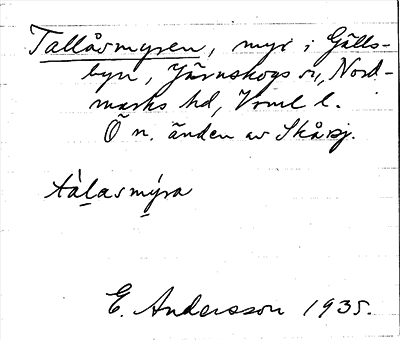 Tallåsmyren, myr i Gälls-
byn, Järnskogs sn, Nord-
marks hd, Vrml l.
Ö n. änden av Skårsj.
tàlasmýra
E. Andersson 1935.